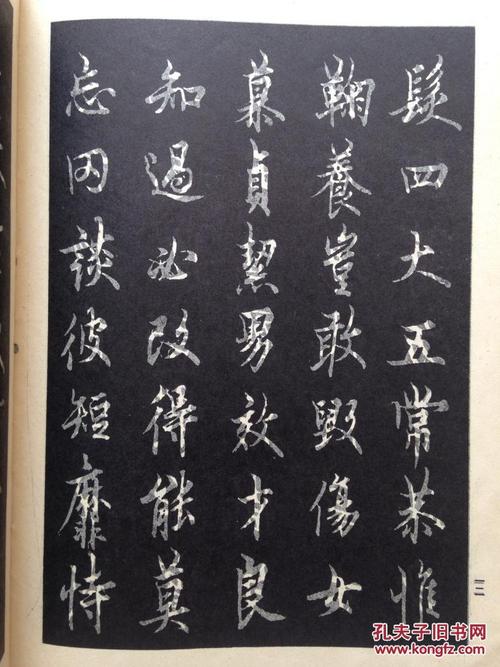 髮四大五常恭惟
鞠養豈敢毀傷女
慕貞絜男效才良
知過必改得能莫
忘罔談彼短靡恃
三
孔夫子旧书网
www.kongfz.com